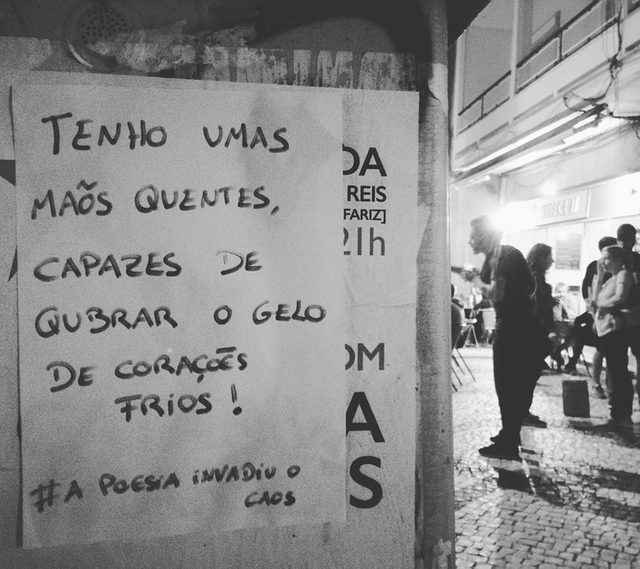 TENHO UMAS
MAÕS QUENTES,
CAPAZES DE
QUBRAR O GELO
DE CORAÇÕES
FRIOS!
#A POESIA INVADIU O
CAOS
DA
REIS
FARIZ]
21h
OM
A
S